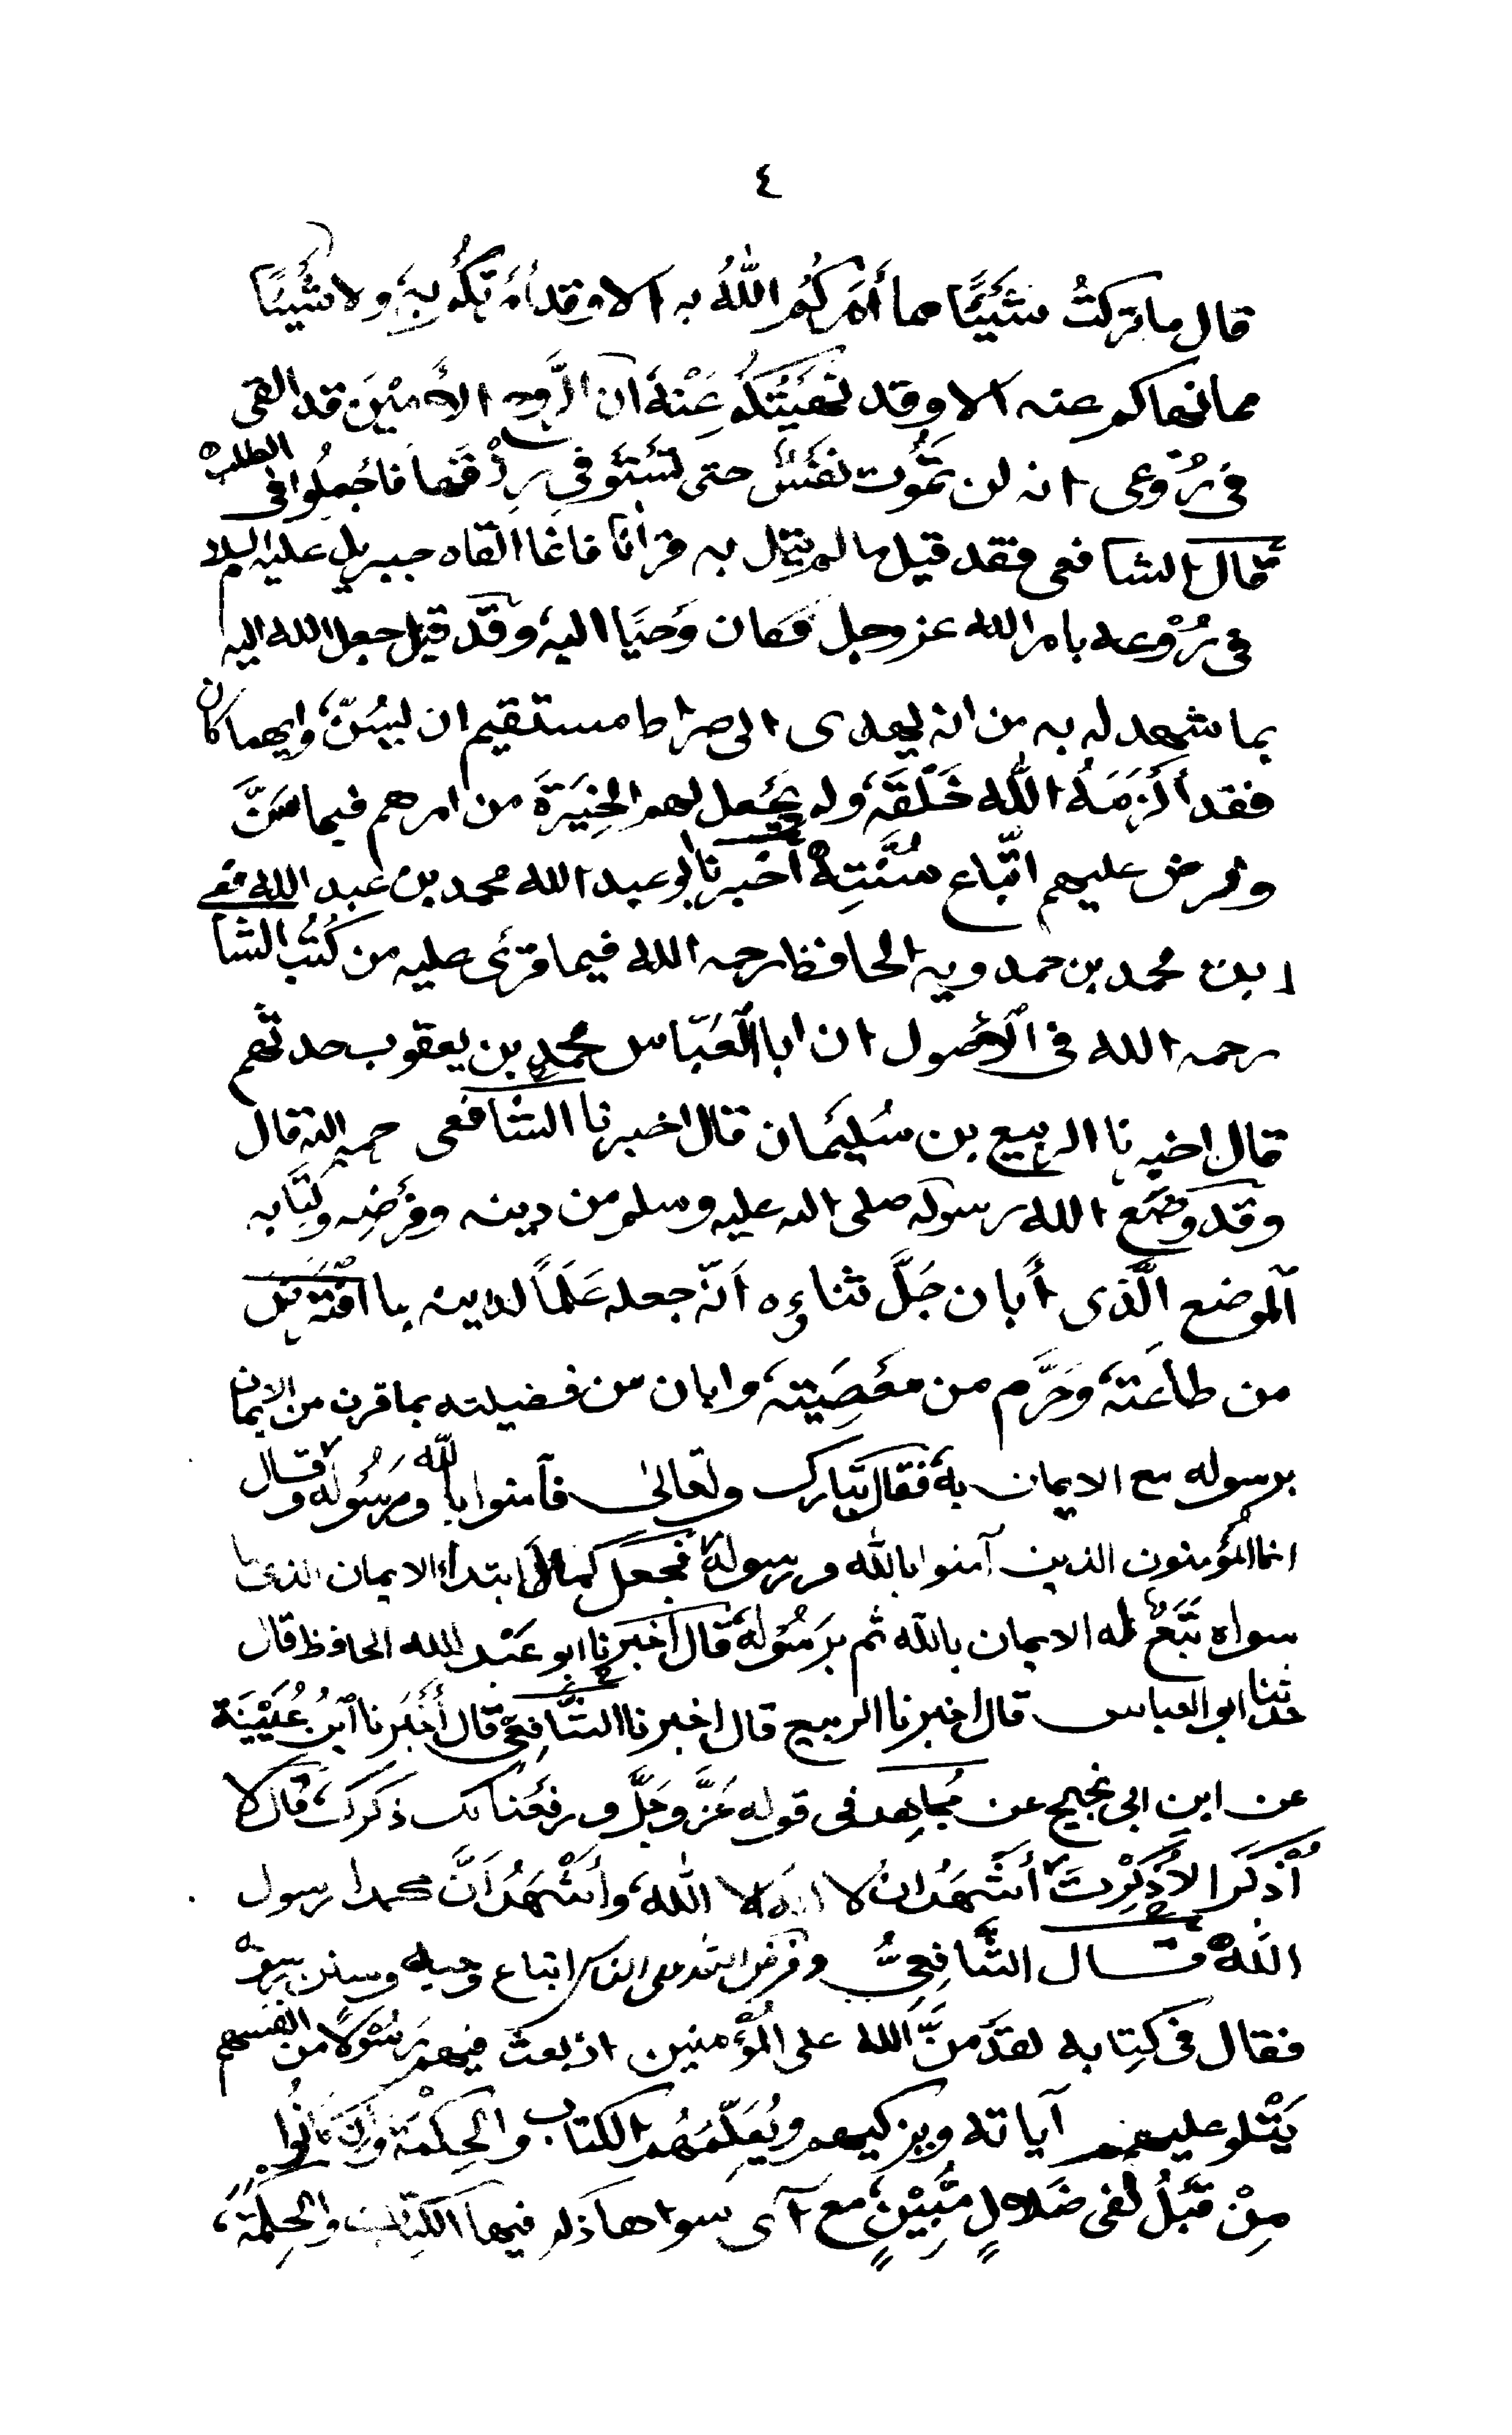 ٤
قال ما تركتُ شَيئًا مما أَمَركُم اللّٰهُ به الا وقد أمرتكُم بِه، ولا شَيئًا
مما نهاكم عنه الا وقد نَهَيتُكُم عَنْهُ ان الرَّوح الأمِيْنَ قد القى
فى رُوْعى انه لن تَمُوت نَفْسٌ حتى تَسْتَوْفي رِزْقَهَا فَاجْمِلُوا فى الطلب
قال الشافعى فقد قيل ما لم يتل به قرآنا فانما القاه جبريل عليه السلام
فى رُوْعه بامر الله عز وجل فكان وَحيَا اليه، وقد قيل جعل الله اليه
بما شهد له به من انه يهدى الى صراط مستقيم ان يسُنّ، وايهما كان
فقد أَلْزَمَهُ اللّٰه خَلْقَه، ولم يَجْعل لهم الخِيَرَةَ من امرهم فيما سَنَّ
وفرض عليهم اتّباع سُنَّتِهِ أخْبرنا ابو عبد الله محمد بن عبد الله
ابن محمد بن حمدويه الحافظ رحمه الله فيما قرئ عليه من كُتُب الشافعى
رحمه الله فى الأصول ان ابا العَبّاس محمد بن يعقوب حدثهم
قال اخبرنا الربيع بن سُلَيْمان قال اخبرنا الشافعى رحمه الله قال
وقد وَضَعَ الله رسوله صلى الله عليه وسلم من دينه وفَرْضِه وكِتَابه
الموضع الَّذى أبان جَلَّ ثناءه اَنّه جعله عَلَمًا لدينه بما افْتَرَضَ
من طاعَته، وحَرَّم من مَعْصِيَته، وابان من فضيلته بما قرن من الايمان
برسوله مع الايمان به، فقال تبارك وتعالىٰ فآمنوا باللّٰه ورَسُوله وقال
انما المُؤمنون الذين آمنوا باللّٰه ورسوله فجعل كمال ابتداء الايمان الذى ما
سواه تَبَعٌ له الايمان بالله ثم بِرَسُوله، قال اَخْبَرنا ابو عَبْد الله الحافظ قال
حدثنا ابو العباس قال اخبرنا الربيع قال اخبرنا الشّافِعىّ قال أَخْبَرنا ابْنُ عُيَيْنَة
عن ابن ابى نجيح عن مُجَاهد فى قوله عَزَّ وجَلَّ ورفَعْنا لك ذكرك، قال لا
أُذْكَرُ الا ذُكِرْتَ أشْهَدُ ان لا اله الا اللّٰه، وأشْهَدُ اَنَّ محمدا رسول
اللّٰه قال الشَّافِعِىُّ وفرض الله على الناس اتباع وحيه وسنن رسوله
فقال فى كِتابه لقد مَنَّ اللّٰه على المُؤْمنين اذ بعث فيهم رَسُوْلًا من انفسهم
يَتْلو عليهم آياته ويزكيهم ويُعَلِّمُهُم الكتاب والحِكْمَة وَاِنْ كانُوا
مِنْ قَبْلُ لفى ضَلالٍ مُّبِيْنٍ، مع آى سواها ذكر فيها الكِتاب والحِكمَة،